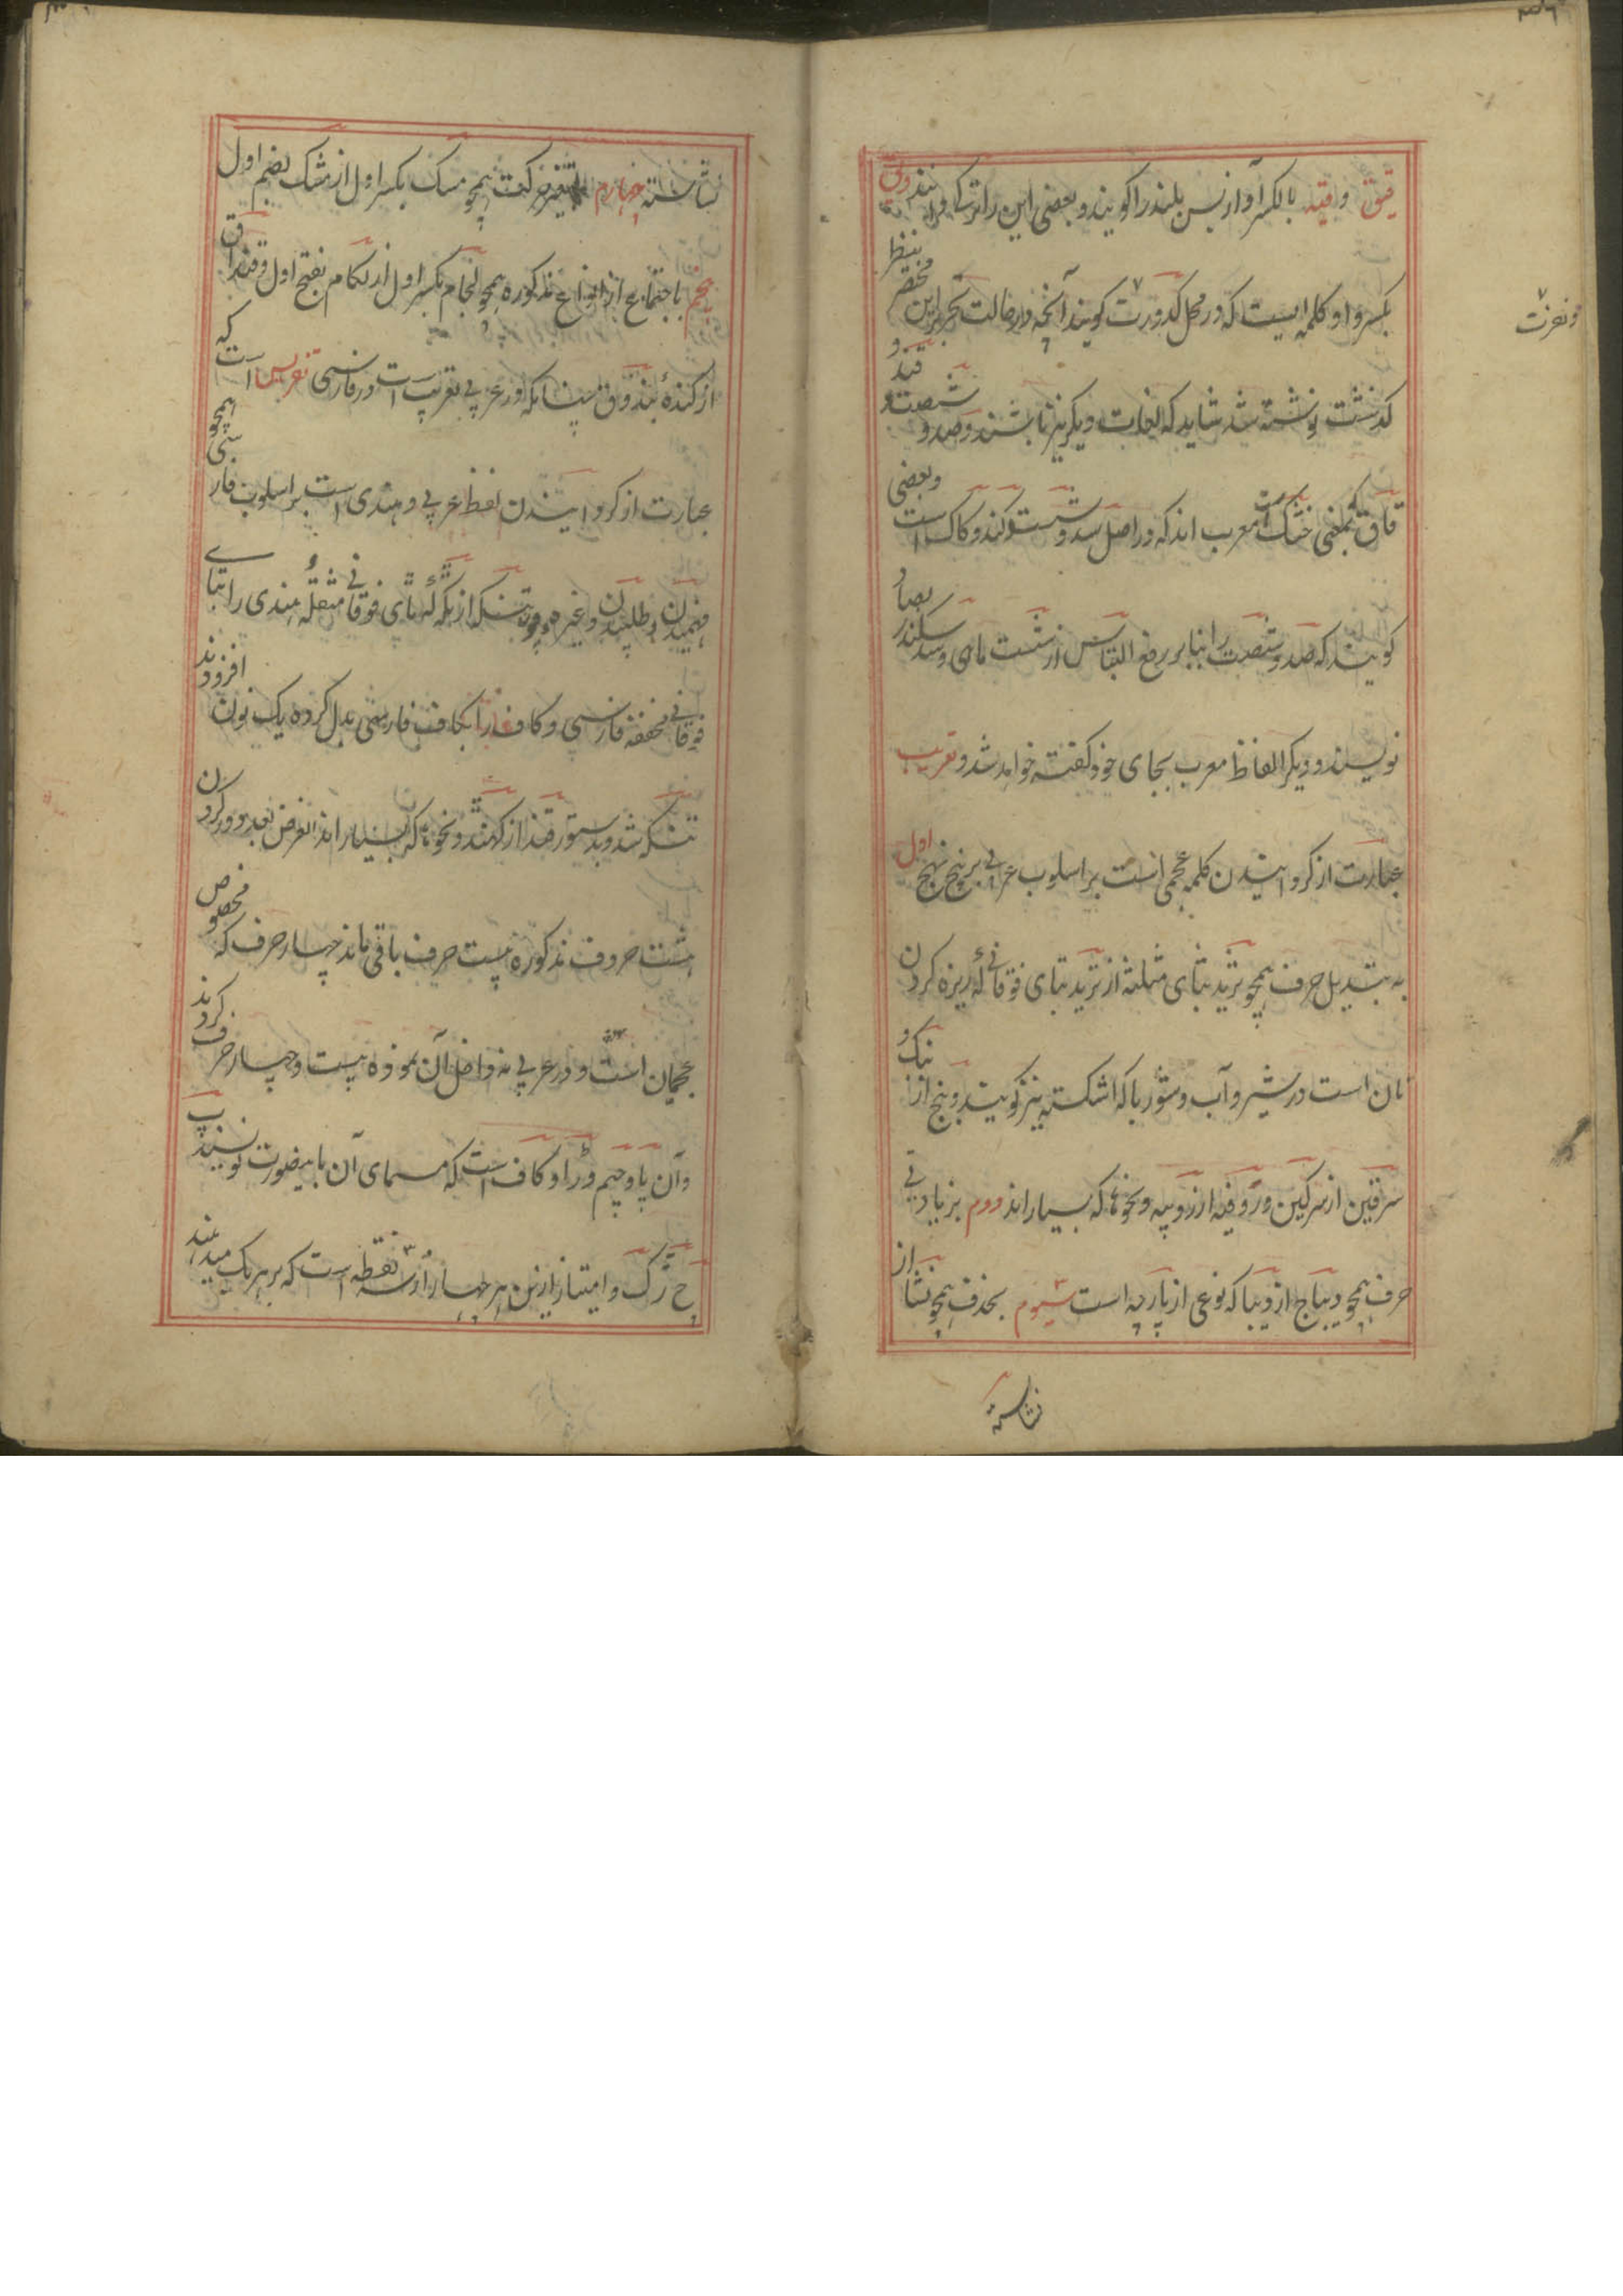 قیق وقیه بالکسر آواز بس بلند را گویند و بعضی این را ترک گویند وئ
بکسر واو کلمه ایست که در محل کدورت گویند آنچه در حالت تحریر این مختصر بنظر
کذشت نوشته شد شاید که لغات دیکر نیز باشند و صد و شصت و قند و
قاق بمعنی خشک معرب اند که در اصل سد و شست و کند و کاک است و بعضی
کویند که صد و شصت را بنابر رفع التباس از شست ماهی و سد سکندر بصاد
نویسند و دیکر الفاظ معرب بجای خود کفته خواهد شد و تعریب
عبارت از کردانیدن کلمه عجمی است بر اسلوب عربی بر پنج نهج اول
به تبدیل حرف همچو ثرید بثای مثلثه از ترید بتای فوقانی که ریزه کردن
نان است در شیر و آب و شوربا که اشکنه نیز کویند و بنج از بنک و
سرقین از سرکین و روفیه از روپیه و نحوها که بسیار اند دوم بزیادتی
حرف همچو دیباج از دیبا که نوعی از پارچه است سیوم بحذف همچو نشا از
نشاسته
نشاسته چهارم بتغیر حرکت همچو مسک بکسر اول از مشک بضم اول
پنجم باجتماع از انواع مذکوره همچو لجام بکسر اول از لکام بفتح اول و قنداق
از کنده بندوق چنانکه در عربی تعریب است در فارسی تفریس است که
عبارت از کردانیدن لفظ عربی و هندی است بر اسلوب فارسی همچو
فهمیدن و طلبیدن و غیره و تنکه از ٹکه که تای فوقانی مثقله هندی را بتای
فوقانی مخففه فارسی و کاف را بکاف فارسی بدل کرده یک نون افزودند
تنکه شد و بدستور قند از کهنڈ و نحوها که بسیار اند الغرض بعد دور کردن
هشت حروف مذکوره بیست حرف باقی ماند چهار حرف که مخصوص
عجمیان است و در عربی نه داخل آن نموده بیست و چهار حرف کردند
وآن پا و چیم و ژا و کاف است که مسمای آن باینصورت نویسند پ
چ ژ گ و امتیاز ازین هر چهار از سه نقطه است که بر هر یک میدهند